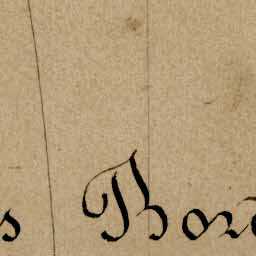 s Bor